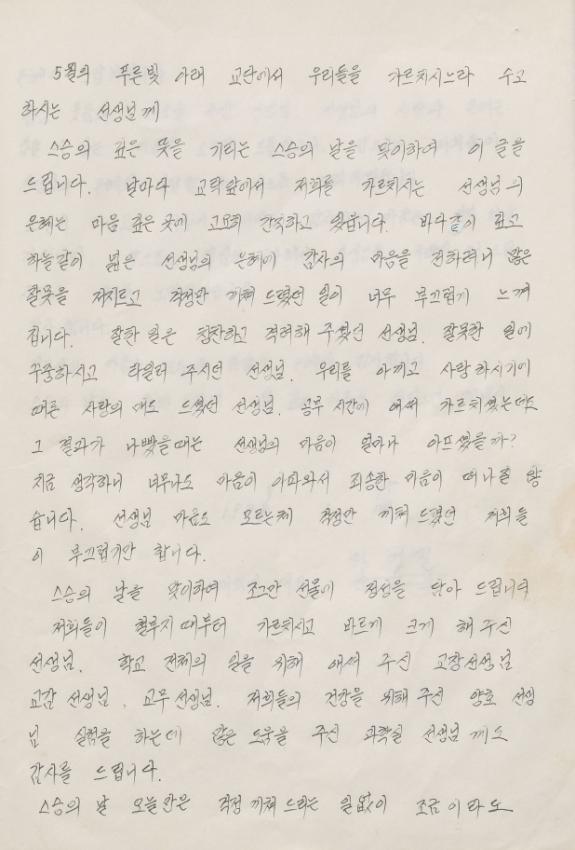 5월의 푸른빛 아래 교단에서 우리들을 가르치시느라 수고
하시는 선생님께
스승의 깊은 뜻을 기리는 스승의 날을 맞이하여 이 글을
드립니다. 날마다 교탁앞에서 저희를 가르치시는 선생님의
은혜는 마음 깊은 곳에 고요히 간직하고 있읍니다. 바다같이 깊고
하늘같이 넓은 선생님의 은혜에 감사의 마음을 전하려니 많은
잘못을 저지르고 걱정만 끼쳐 드렸던 일이 너무 부끄럽게 느껴
집니다. 잘한 일은 칭찬하고 격려해 주셨던 선생님. 잘못한 일에
꾸중하시고 타일러 주시던 선생님. 우리를 아끼고 사랑하시기에
때론 사랑의 매도 드셨던 선생님. 공부 시간에 애써 가르치셨는데도
그 결과가 나빴을때는 선생님의 마음이 얼마나 아프셨을까?
지금 생각하니 너무나도 마음이 아파와서 죄송한 마음이 떠나질 않
습니다. 선생님 마음도 모르는체 걱정만 끼쳐 드렸던 저희들
이 부끄럽기만 합니다.
스승의 날을 맞이하여 조그만 선물에 정성을 담아 드립니다
저희들이 철부지때부터 가르치시고 바르게 크게 해 주신
선생님. 학교 전체의 일을 위해 애써 주신 교장선생님
교감 선생님, 교무선생님. 저희들의 건강을 위해 주신 양호 선생
님 실험을 하는데 많은 도움을 주신 과학실 선생님께도
감사를 드립니다.
스승의 날 오늘만은 걱정 끼쳐 드리는 일없이 조금이라도